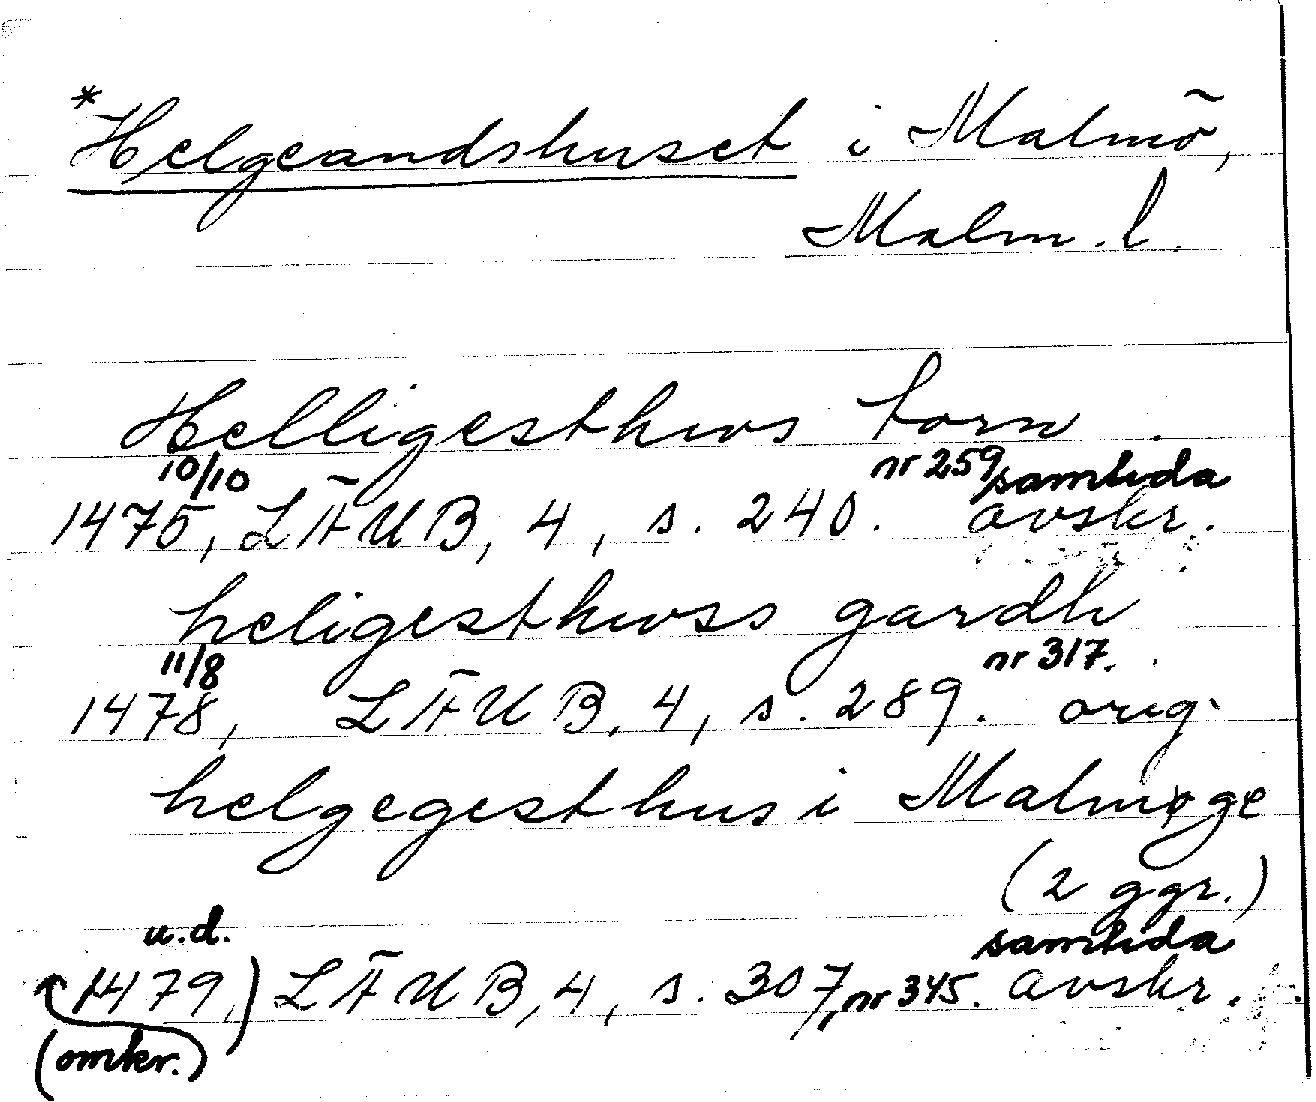 *Helgeandshuset i Malmö,
Malm. l.
Helligesthws torn
10/10 nr 259 samtida
1475, LÄUB, 4, s. 240. avskr.
heligesthwss gardh
11/8 nr 317.
1478, LÄUB, 4, s. 289. orig.
helgegesthus i Malmøge
(2 ggr.)
u.d. samtida
1479,) LÄUB, 4, s. 307, nr 345. avskr.
(omkr.)